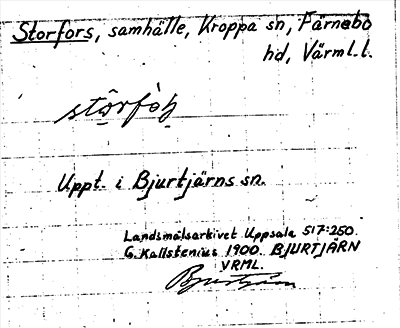 Storfors, samhälle, Kroppa sn, Färnebo
hd, Värml.l.
Uppt. i Bjurtjärns sn.
Landsmålsarkivet Uppsala 517:250.
G. Kallstenius 1900. BJURTJÄRN
VRML.
Bjurtjärn